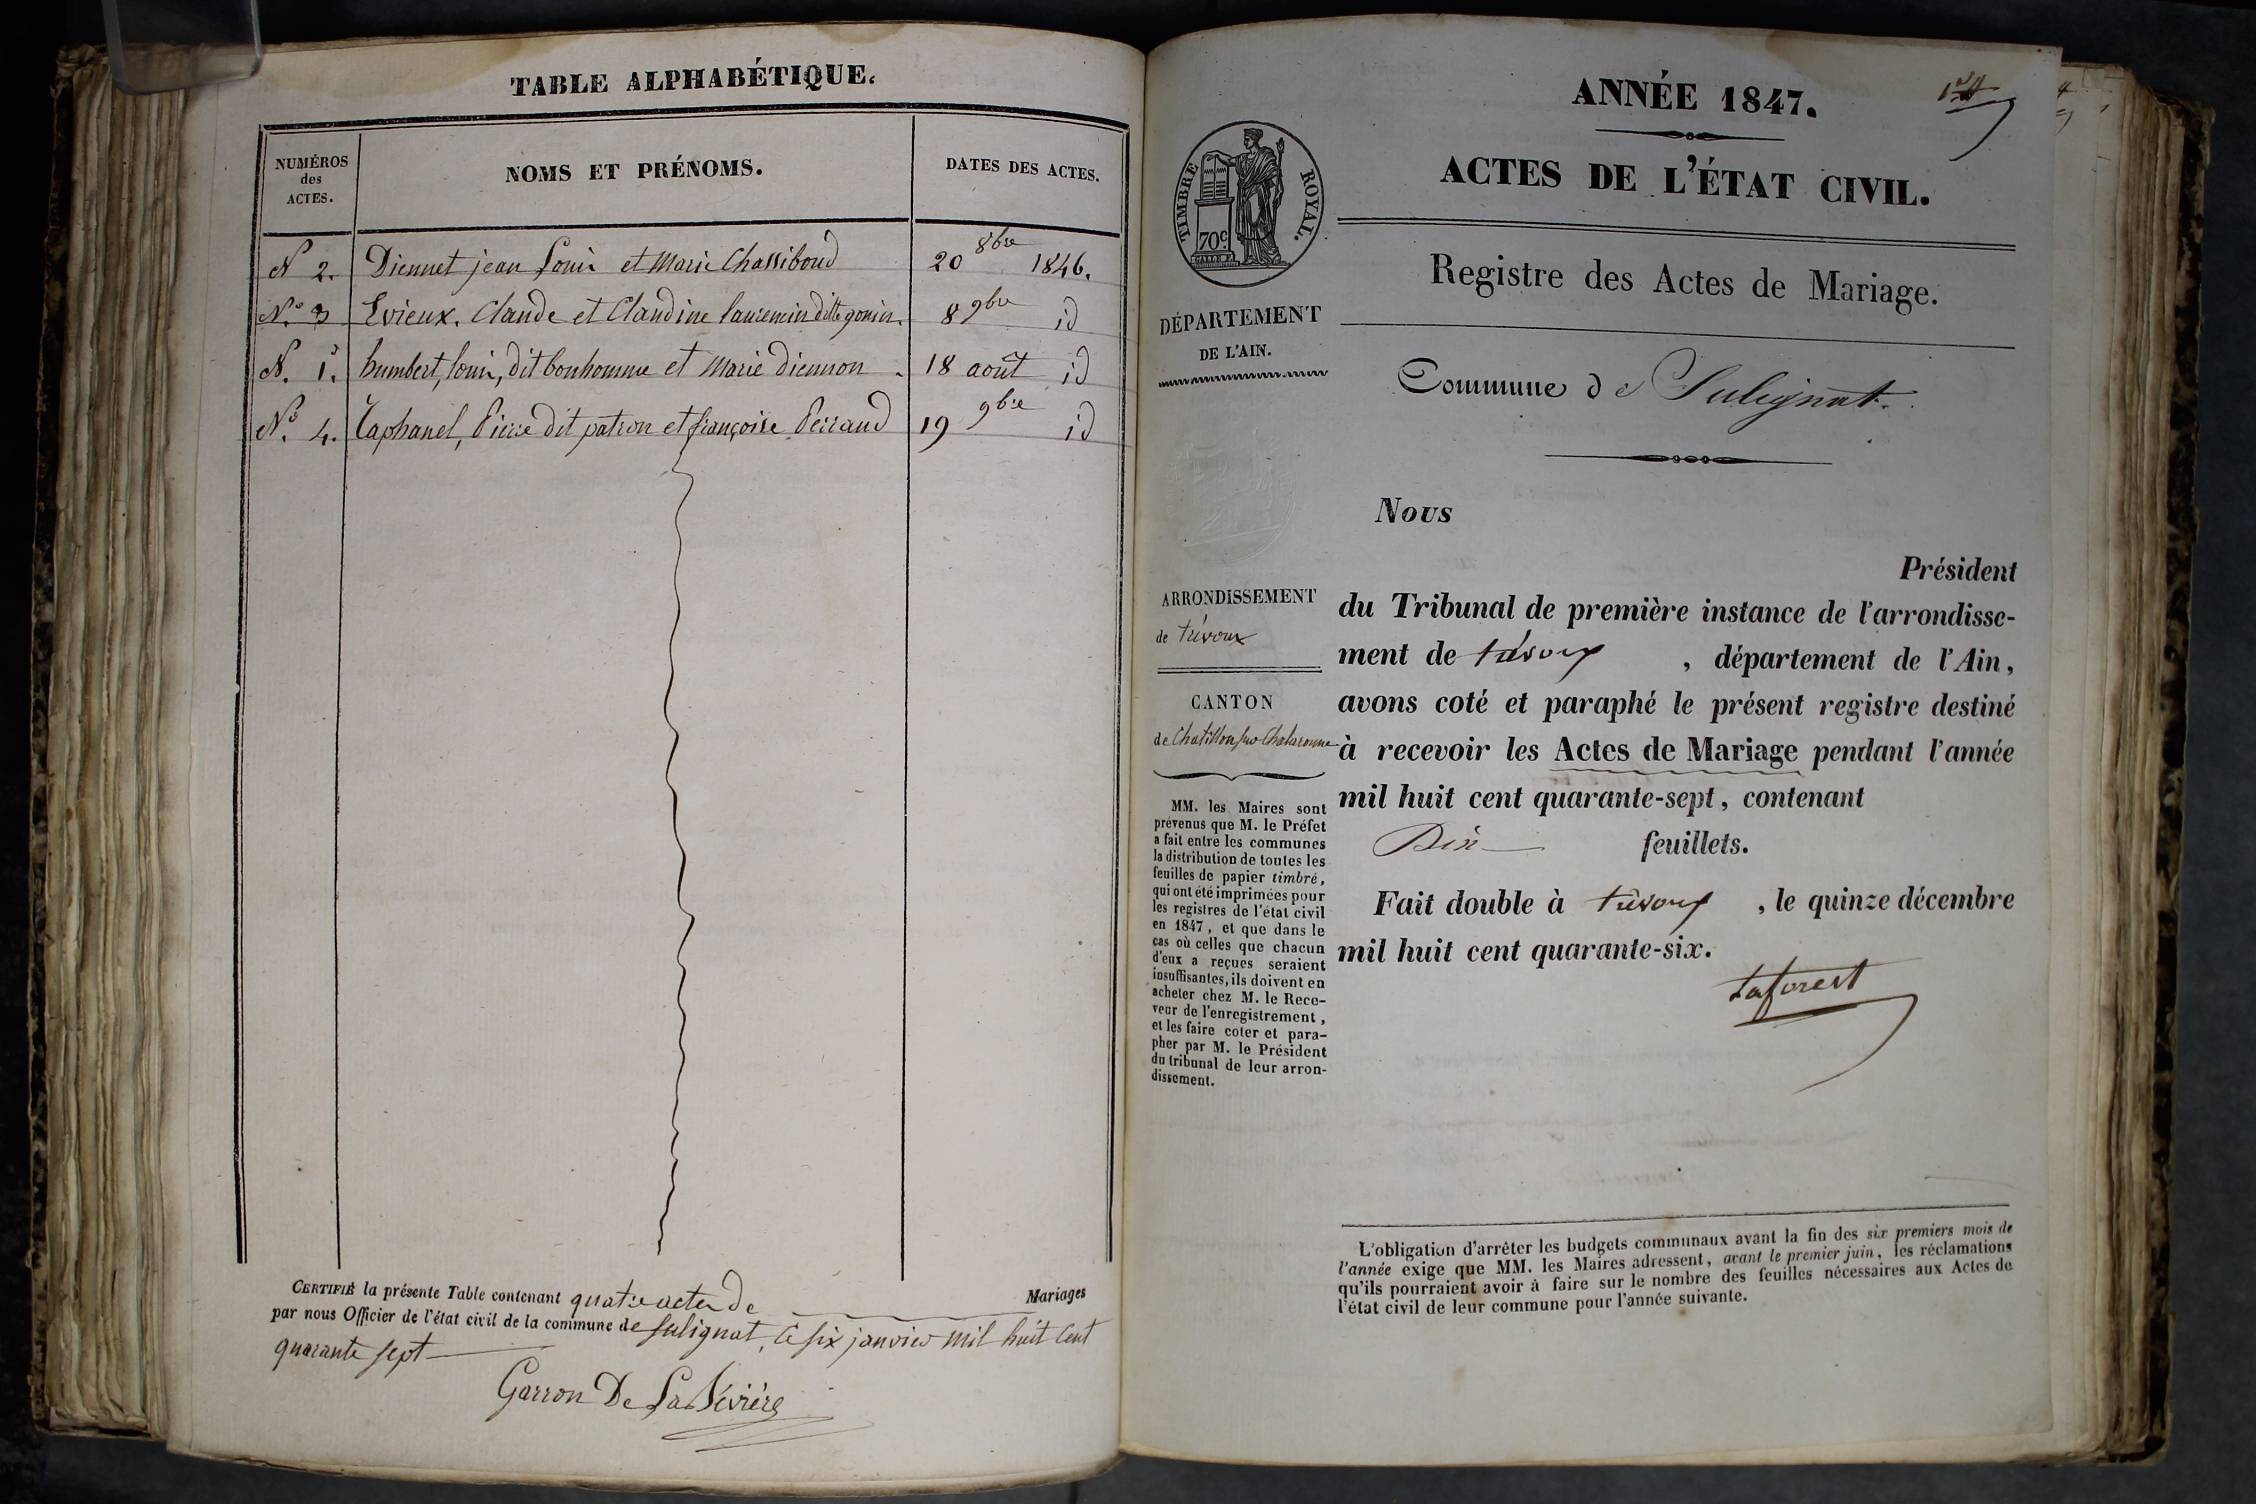 TABLE ALPHABÉTIQUE.
NUMÉROS
des
ACTES.
NOMS ET PRÉNOMS.
DATES DES ACTES.
N 2. Diennet jean Louis et Marie Chassiboud 20 8bre 1846.
N.° 3 Evieux. Claude et Claudine laurencin ditte gonin. 8 9bre id
N. 1. humbert, louis, dit bonhomme et Marie diennon 18 août id
N.° 4. Taphanel, Pierre dit patron et françoise Perraud 19 9bre id
CERTIFIÉ la présente Table contenant quatre actes de Mariages
par nous Officier de l'état civil de la commune de Sulignat, ce six janvier mil huit cent
quarante sept
Garron De La Bévière
ANNÉE 1847.
ACTES DE L'ÉTAT CIVIL.
TIMBRE ROYAL.
70c
Registre des Actes de Mariage.
DÉPARTEMENT
DE L'AIN.
Commune de Sulignat.
Nous
Président
ARRONDISSEMENT
de trévoux
CANTON
de Chatillon sur Chalaronne
du Tribunal de première instance de l'arrondisse-
ment de trévoux, département de l'Ain,
avons coté et paraphé le présent registre destiné
à recevoir les Actes de Mariage pendant l'année
mil huit cent quarante-sept, contenant
Dix feuillets.
Fait double à trévoux, le quinze décembre
mil huit cent quarante-six.
Laforest
MM. les Maires sont
prévenus que M. le Préfet
a fait entre les communes
la distribution de toutes les
feuilles de papier timbré,
qui ont été imprimées pour
les registres de l'état civil
en 1847, et que dans le
cas où celles que chacun
d'eux a reçues seraient
insuffisantes, ils doivent en
acheter chez M. le Rece-
veur de l'enregistrement,
et les faire coter et para-
pher par M. le Président
du tribunal de leur arron-
dissement.
L'obligation d'arrêter les budgets communaux avant la fin des six premiers mois de
l'année exige que MM. les Maires adressent, avant le premier juin, les réclamations
qu'ils pourraient avoir à faire sur le nombre des feuilles nécessaires aux Actes de
l'état civil de leur commune pour l'année suivante.